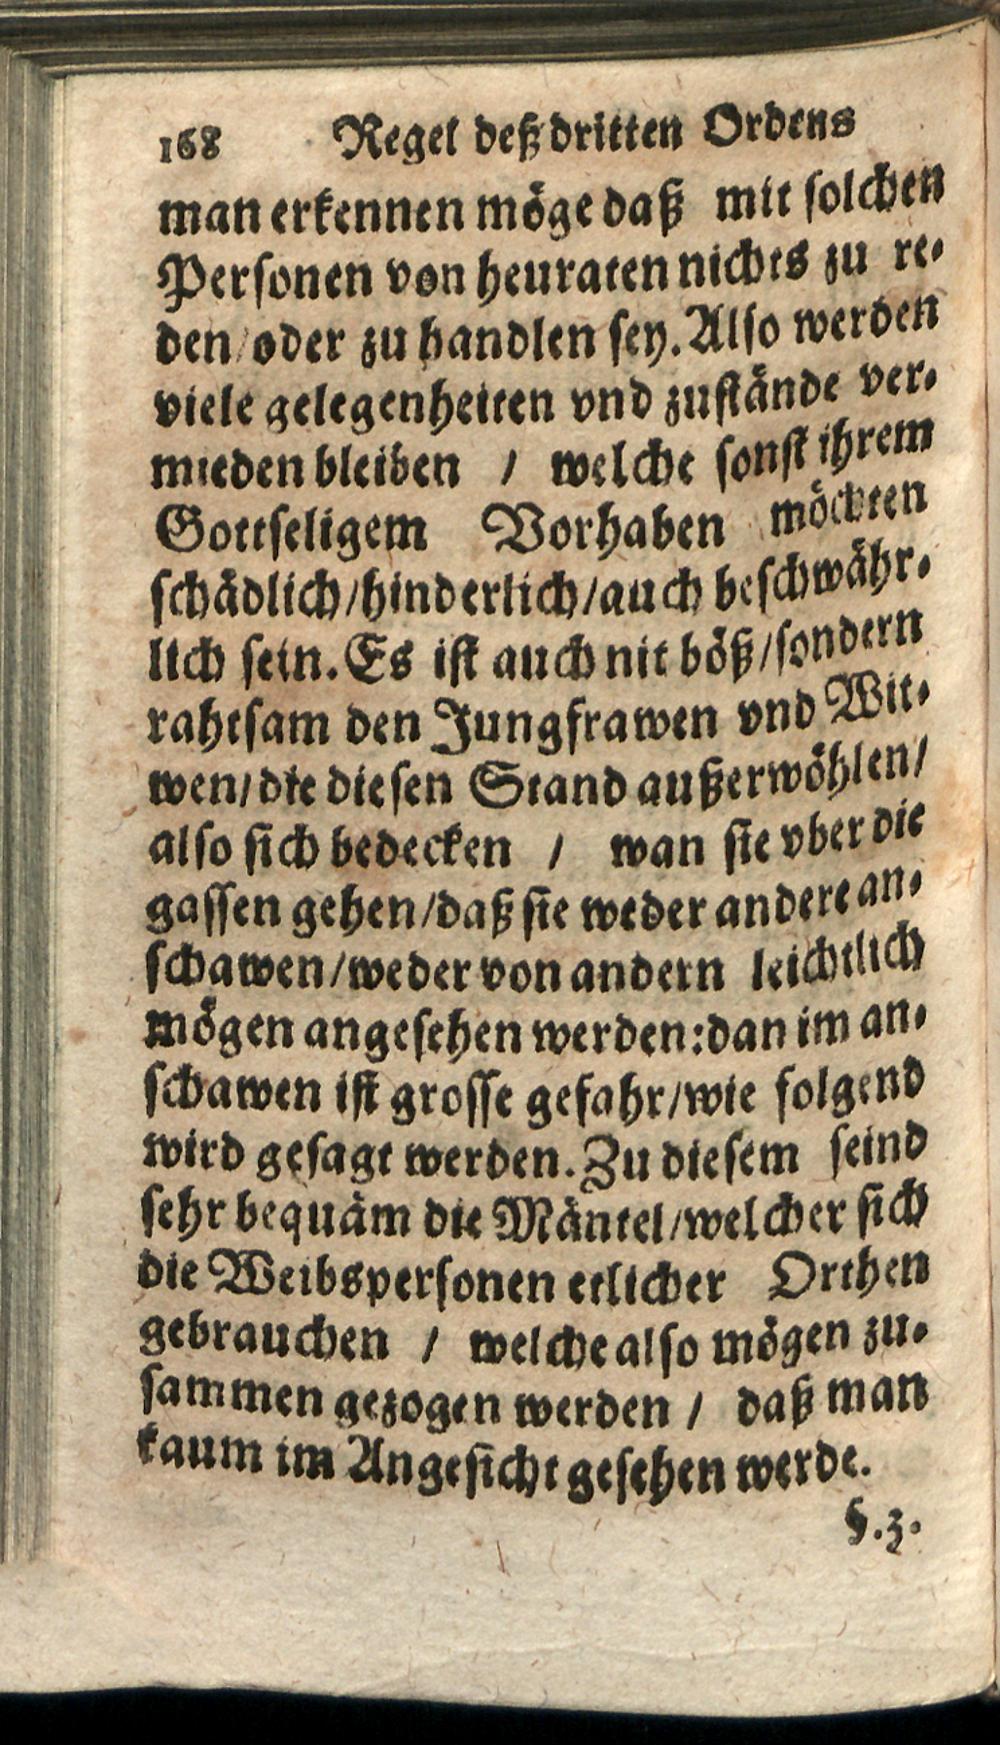 168 Regel deß dritten Ordens
man erkennen möge daß mit solchen
Personen von heuraten nichts zu re-
den/oder zu handlen sey. Also werden
viele gelegenheiten vnd zustände ver-
mieden bleiben / welche sonst ihrem
Gottseligem Vorhaben möchten
schädlich/hinderlich/auch beschwähr-
lich sein. Es ist auch nit böß/sondern
rahtsam den Jungfrawen vnd Wit-
wen/die diesen Stand außerwöhlen/
also sich bedecken / wan sie vber die
gassen gehen/daß sie weder andere an-
schawen/weder von andern leichtlich
mögen angesehen werden: dan im an-
schawen ist grosse gefahr/wie folgend
wird gesagt werden. Zu diesem seind
sehr bequäm die Mäntel/welcher sich
die Weibspersonen etlicher Orthen
gebrauchen / welche also mögen zu-
sammen gezogen werden / daß man
kaum im Angesicht gesehen werde.
§.3.